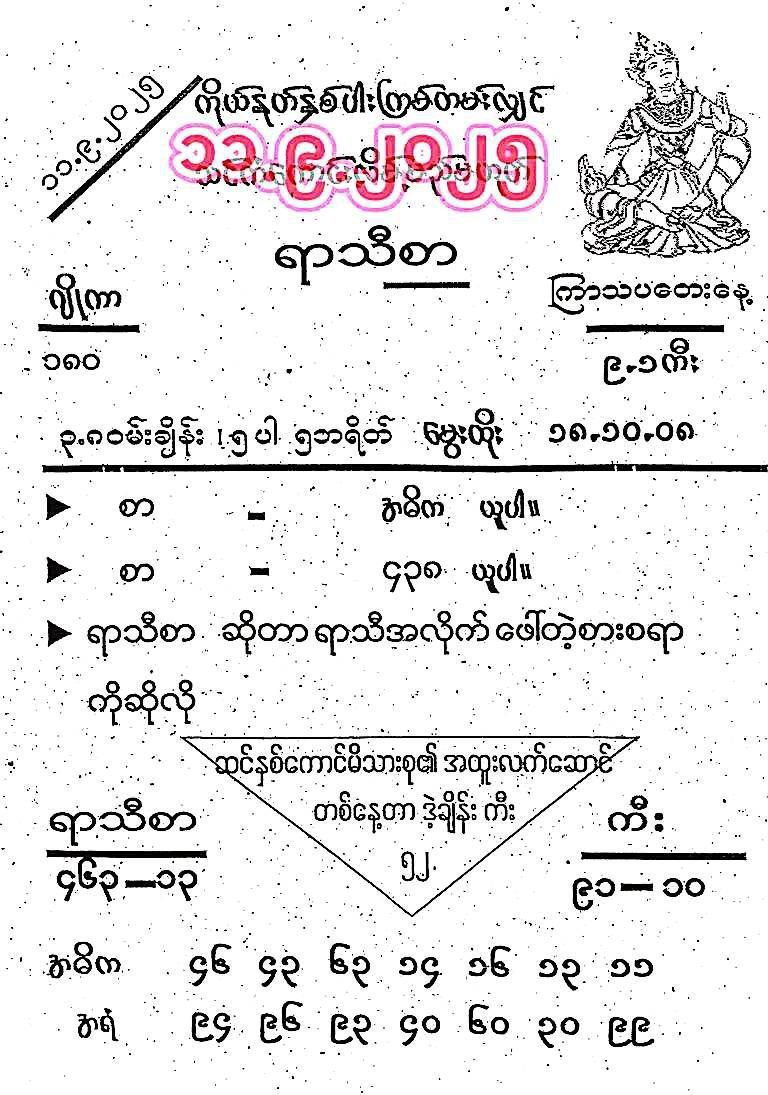 ၁၁.၉.၂၀၂၅
ကိုယ်နုတ်နှစ်ပါးကြမ်တမ်းလျှင်
၁၁.၉.၂၀၂၅
ရာသီစာ
ဂျိုကာ
ကြာသပတေးနေ့
၁၈၀
၉.၁ကီး
၃.၈ဝမ်းချိန်း ၊၅ပါ ၅ဘရိတ် မွေးထိုး ၁၈.၁၀.၀၈
စာ - အဓိက ယူပါ။
စာ - ၄၃၈ ယူပါ။
ရာသီစာ ဆိုတာ ရာသီအလိုက် ဖေါ်တဲ့စားစရာ
ကိုဆိုလို
ဆင်နှစ်ကောင်မိသားစု၏ အထူးလက်ဆောင်
တစ်နေ့တာ ဒဲ့ချိန်း ကီး
၅၂.
ရာသီစာ
ကီး
၄၆၃—၁၃
၉၁—၁၀
အဓိက ၄၆ ၄၃ ၆၃ ၁၄ ၁၆ ၁၃ ၁၁
အရံ ၉၄ ၉၆ ၉၃ ၄၀ ၆၀ ၃၀ ၉၉